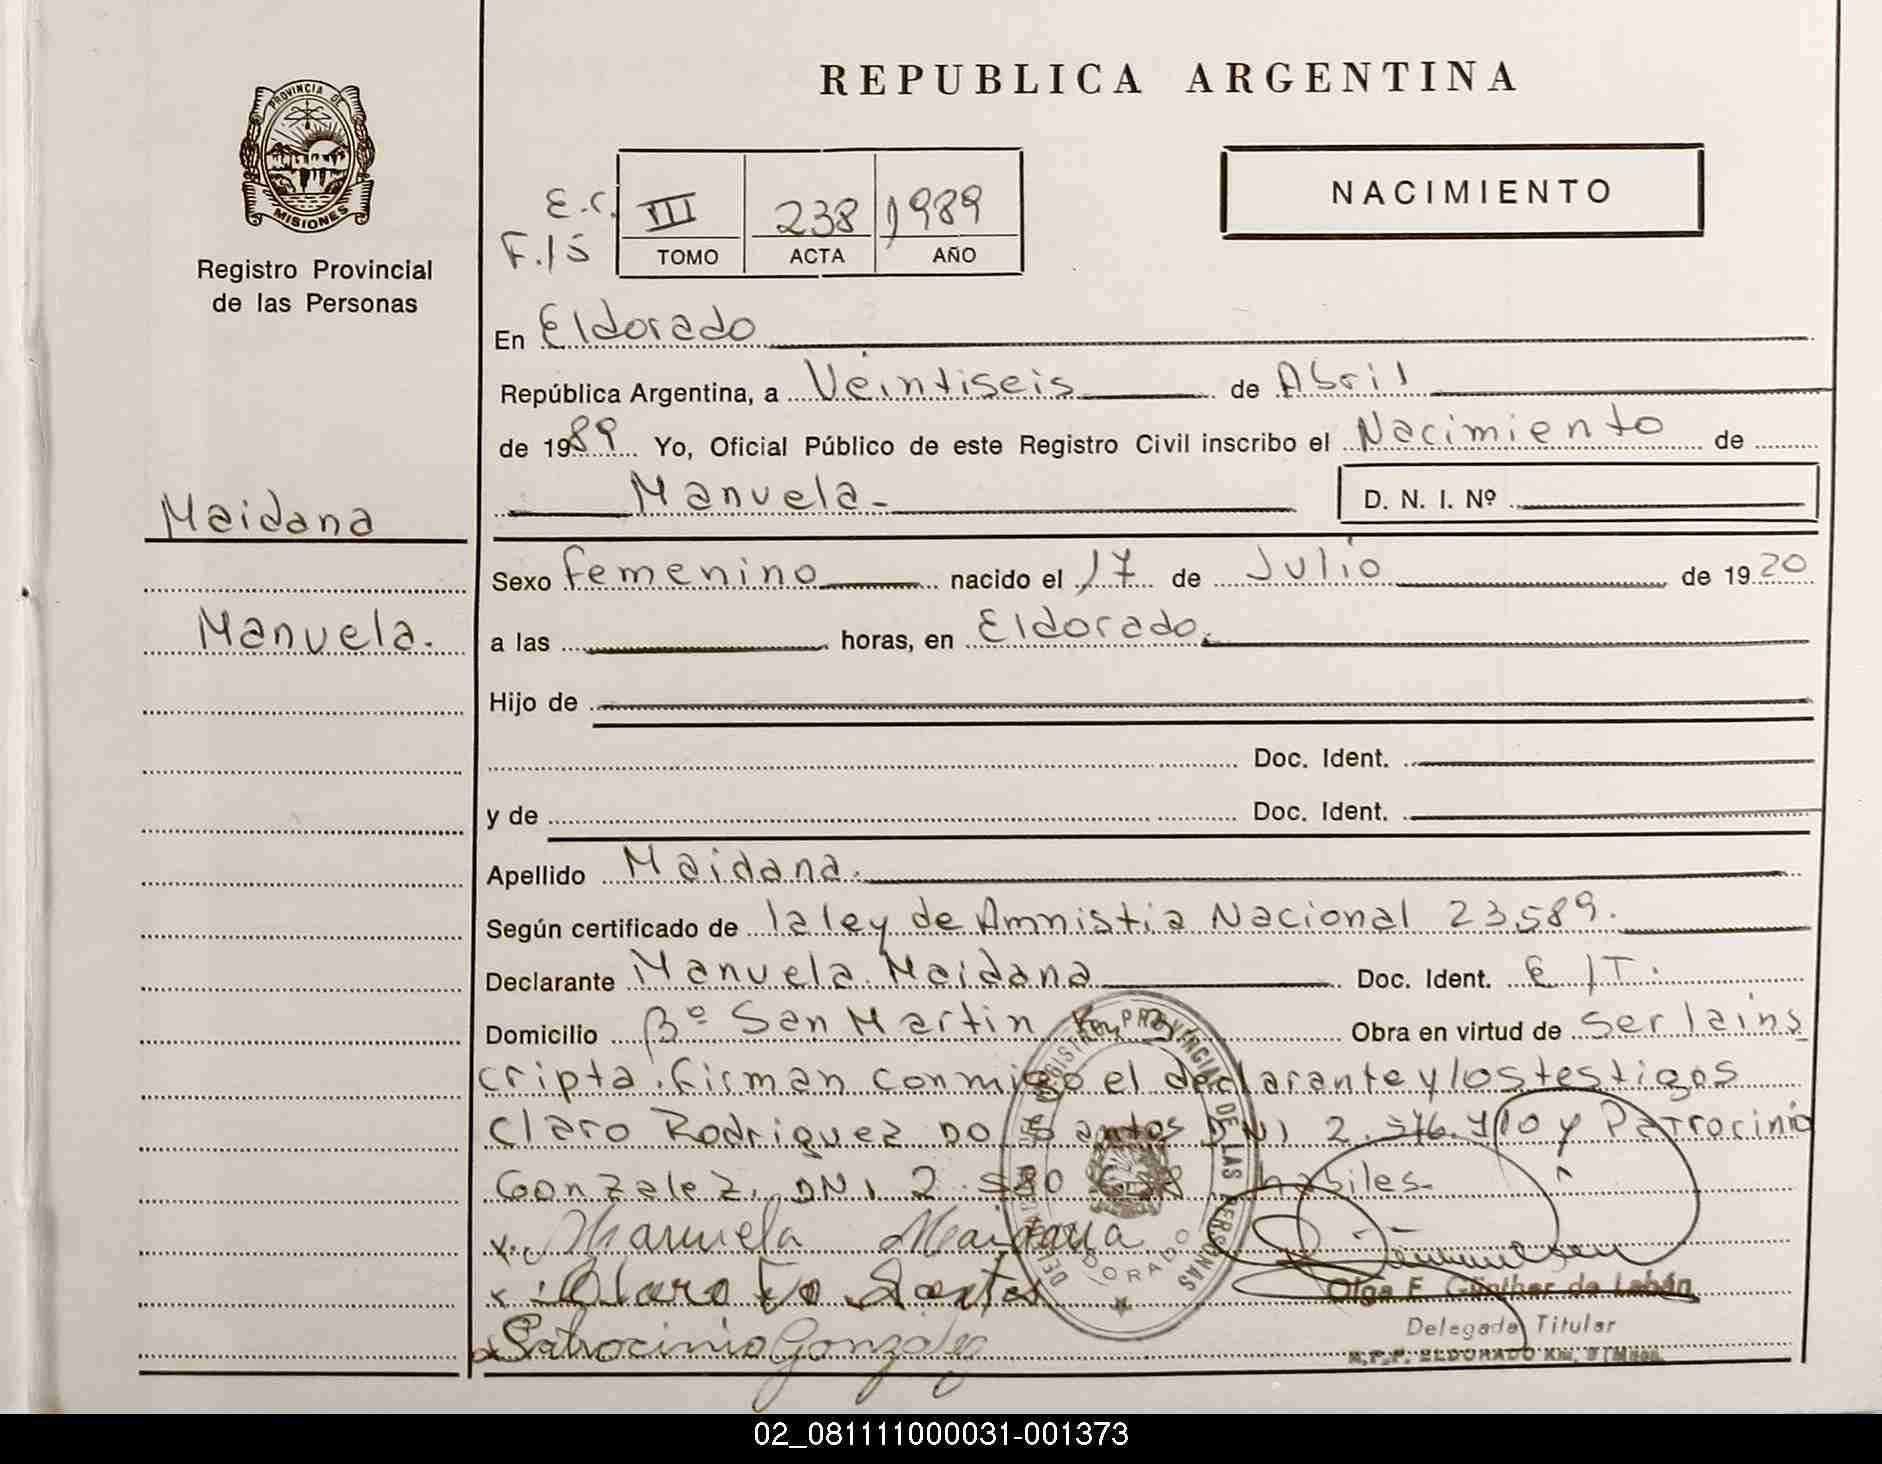 PROVINCIA DE
MISIONES
Registro Provincial
de las Personas
Maidana
Manuela.
REPUBLICA ARGENTINA
NACIMIENTO
E.C. III 238 1989
F.15 TOMO ACTA AÑO
En Eldorado
República Argentina, a Veintiseis de Abril
de 1989 Yo, Oficial Público de este Registro Civil inscribo el Nacimiento de
Manuela- D. N. I. Nº
Sexo Femenino nacido el 17 de Julio de 1920
a las horas, en Eldorado.
Hijo de
Doc. Ident.
y de Doc. Ident.
Apellido Maidana.
Según certificado de la ley de Amnistia Nacional 23.589.
Declarante Manuela Maidana Doc. Ident. E/T.
Domicilio Bº San Martin Km Obra en virtud de ser la ins
cripta. Firman conmigo el declarante y los testigos
Claro Rodriguez Do Santos DNI 2. y Patrocinio
Gonzalez. DNI 2. habiles.
x Manuela Maidana
x Claro Do Santos
x Patrocinio Gonzalez
REGISTRO PROVINCIAL DE LAS PERSONAS
ELDORADO
Olga F. Günther de Labán
Delegada Titular
R.P.P. ELDORADO Km.
02_081111000031-001373